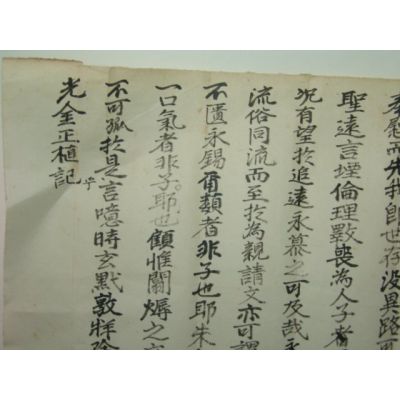 慰而先我卽世存没異路
聖遠言堙倫理斁喪爲人子者
況有望於追遠永慕之可及哉
流俗同流而至於爲親請文亦可
不匱永錫爾類者非子也耶朱
一口氣者非子耶也顧惟關燖之
不可孤於是言噫時玄黙敦牂
光金正植記